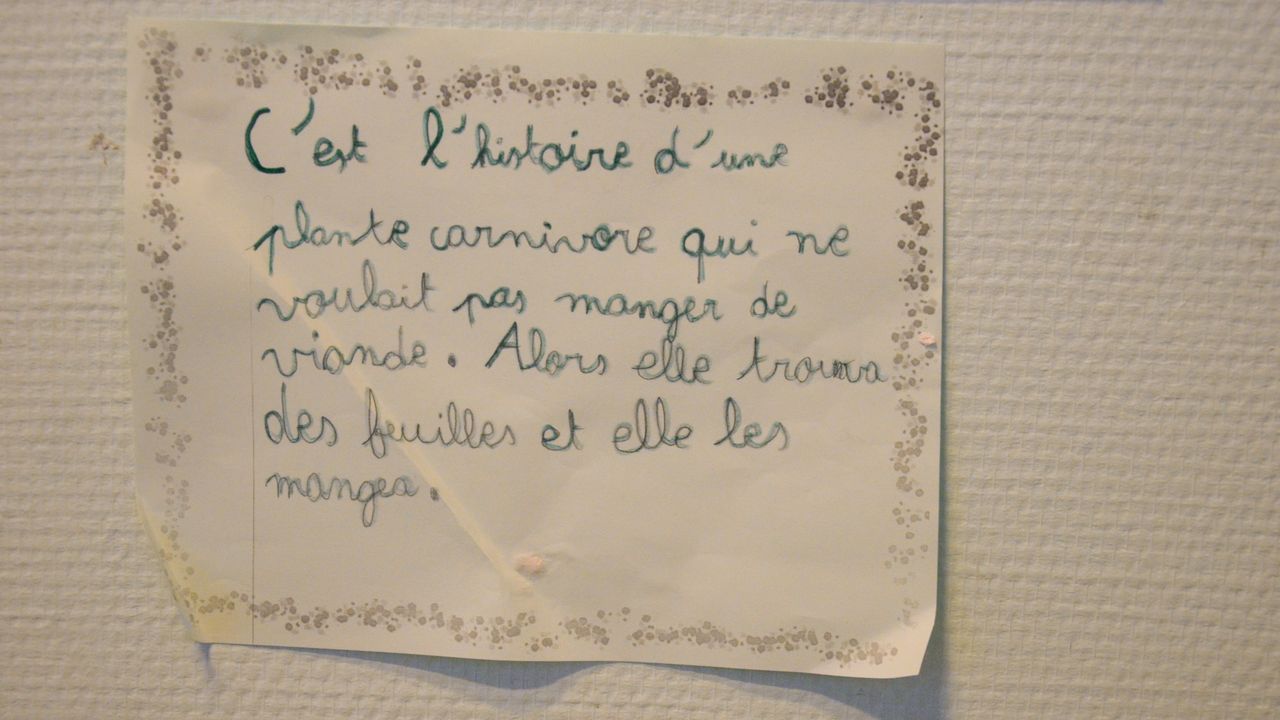 C'est l'histoire d'une
plante carnivore qui ne
voulait pas manger de
viande. Alors elle trouva
des feuilles et elle les
mangea.